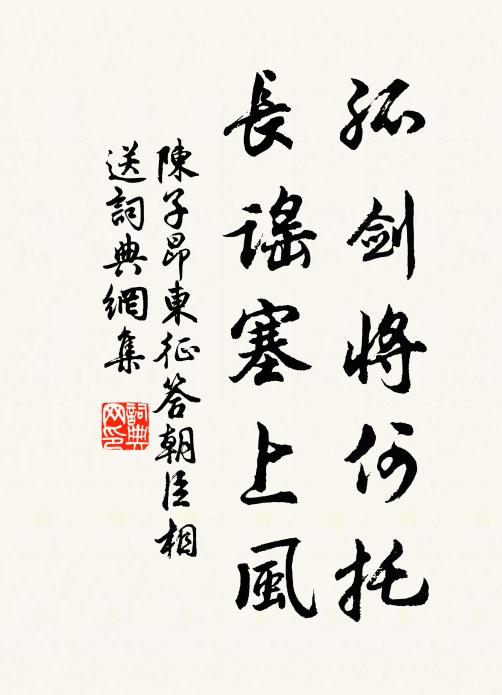 孤剑将何托
長謡塞上風
陳子昂東征答朝臣相
送詞典網集
詞典
网印